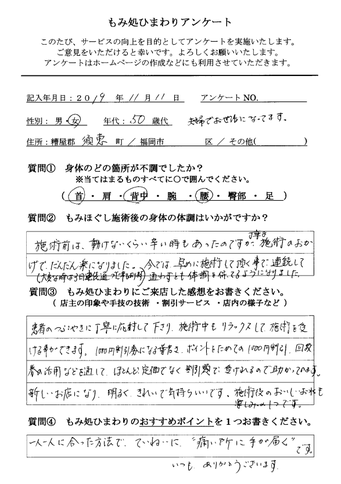 もみ処ひまわりアンケート
このたび、サービスの向上を目的としてアンケートを実施いたします。
ご意見をいただけると幸いです。よろしくお願いいたします。
アンケートはホームページの作成などにも利用させていただきます。
記入年月日：2019 年 11 月 11 日 アンケート NO.
性別： 男・女 年代：50 歳代 夫婦でお世話になってます。
住所：糟屋郡 須恵 町 / 福岡市 区 / その他( )
質問① 身体のどの箇所が不調でしたか？
※当てはまるものすべてに○で囲んでください。
( 首 ・ 肩 ・ 背中 ・ 腕 ・ 腰 ・ 臀部 ・ 足 )
質問② もみほぐし施術後の身体の体調はいかがですか？
施術前は、動けないくらい辛い時もあったのですが、丁寧な施術のおか
げでだんだん楽になりました。今では早めに施術して頂く事で連続して
通わずとも体調を保てるようになりました。
質問③ もみ処ひまわりにご来店した感想をお書きください。
（ 店主の印象や手技の技術 ・割引サービス ・店内の様子など ）
患者のつぶやきに丁寧に反応して下さり、施術中もリラックスして施術を受
ける事ができます。100円割引券になる葉書き、ポイントをためての1000円割引、回数
券の活用などを通して、ほとんど定価でなく割引額で受けれるので助かってます。
新しいお店になり、明るく、きれいで気持ちいいです。施術後のおいしいお水も
楽しみの1つです。
質問④ もみ処ひまわりのおすすめポイントを１つお書きください。
一人一人に合った方法で、ていねいに、"痛い所に手が届く"です。
いつも ありがとうございます。